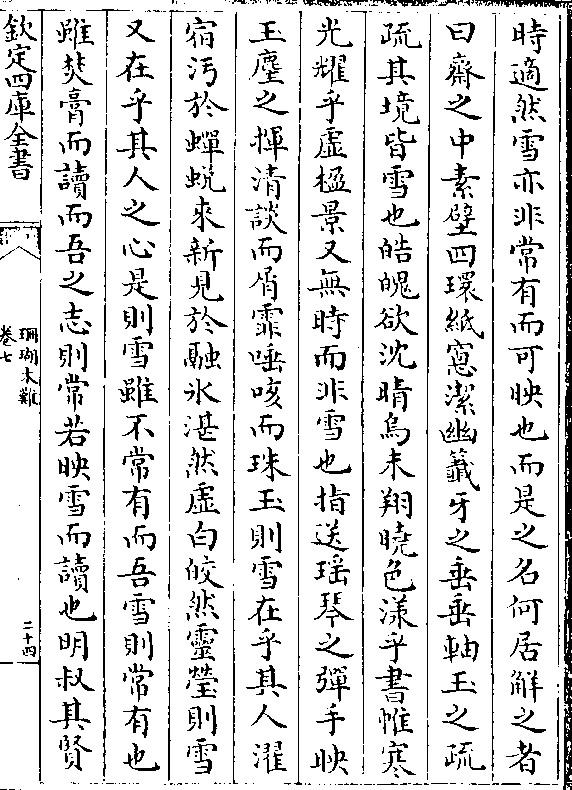 時適然雪亦非常有而可映也而是之名何居解之者
曰齋之中素壁四環紙窻潔幽籤牙之垂垂軸玉之疏
疏其境皆雪也皓魄欲沈晴烏未翔曉色漾乎書帷寒
光耀乎虛楹景又無時而非雪也指送瑶琴之彈手映
玉麈之揮清談而屑霏唾咳而珠玉則雪在乎其人濯
宿汚於蟬蜕來新見於融氷湛然虛白皎然靈瑩則雪
又在乎其人之心是則雪雖不常有而吾雪則常有也
雖焚膏而讀而吾之志則常若映雪而讀也明叔其賢
欽定四庫全書
珊瑚木難
卷七
二十四